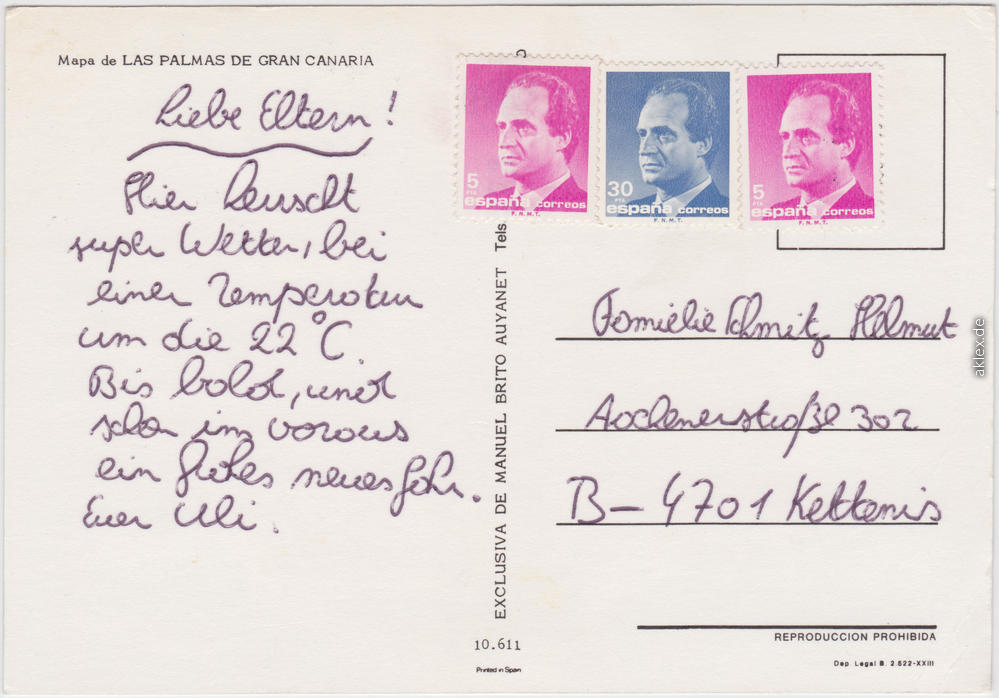 Mapa de LAS PALMAS DE GRAN CANARIA
Liebe Eltern!
Hier herrscht
super Wetter, bei
einer Temperatur
um die 22°C.
Bis bald, und
schon im voraus
ein frohes neues Jahr.
Euer Uli.
5
PTA
españa correos
F.N.M.T.
30
PTA
españa correos
F.N.M.T.
5
PTA
españa correos
F.N.M.T.
EXCLUSIVA DE MANUEL BRITO AUYANET Tels
Familie Schmitz Helmut
Aachenerstraße 302
B-4701 Kettenis
10.611
Printed in Spain
REPRODUCCION PROHIBIDA
Dep. Legal B. 2.522-XXIII
aklex.de